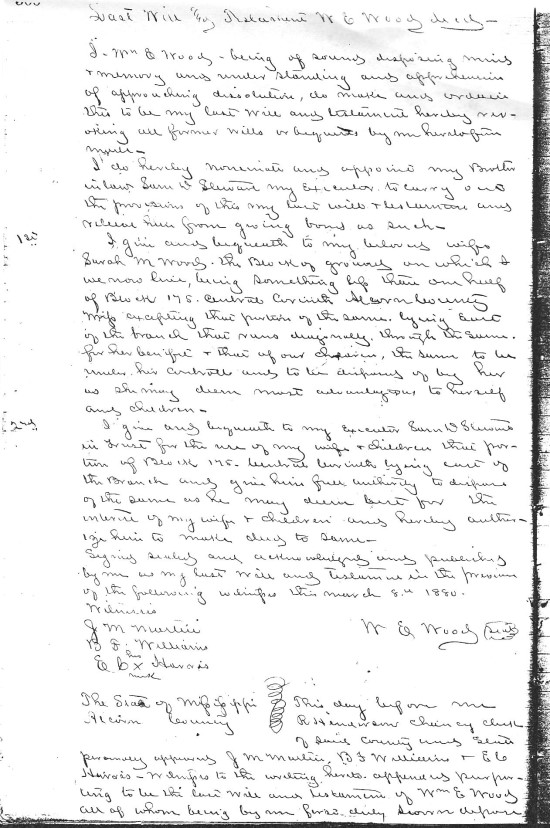 Last Will & Testament W E Wood decd -
I - Wm E Wood - being of sound disposing mind
& memory and understanding and apprehensive
of approaching dissolution, do make and ordain
this to be my last will and testament hereby rev-
oking all former wills or bequests by me heretofore
made -
I do hereby nominate and appoint my Brother
in law Sam W Stewart my Executor to carry out
the provisions of this my last will & testament and
release him from giving bond as such -
1st I give and bequeath to my beloved wife
Sarah M Wood. the Block of ground on which I
we now live, being something less than one half
of Block 175. Central Corinth Alcorn County
Miss excepting that portion of the same lying East
of the branch that runs diagonally through the same.
for her benefit & that of our children, the same to be
under her control and to be disposed of by her
as she may deem most advantageous to herself
and children -
2nd I give and bequeath to my Executor Sam W Stewart
in trust for the use of my wife & children that por-
tion of Block 175. Central Corinth lying east of
the Branch and give him full authority to dispose
of the same as he may deem best for the
interest of my wife & children and hereby author-
ize him to make deed to same -
Signed sealed and acknowledged and published
by me as my last will and testament in the presence
of the following witnesses this march 8th 1880.
Witness
J M Martin
W E Wood (seal)
B F Williams
his
E C x Harris
mark
The State of Mississippi
Alcorn County
This day before me
R Henderson Chancy Clerk
of said County and State
personally appeared J M Martin, B F Williams & E C
Harris - witnesses to the writing hereto appended purpor-
ting to be the last will and testament of Wm E Wood
all of whom being by me first duly sworn depose